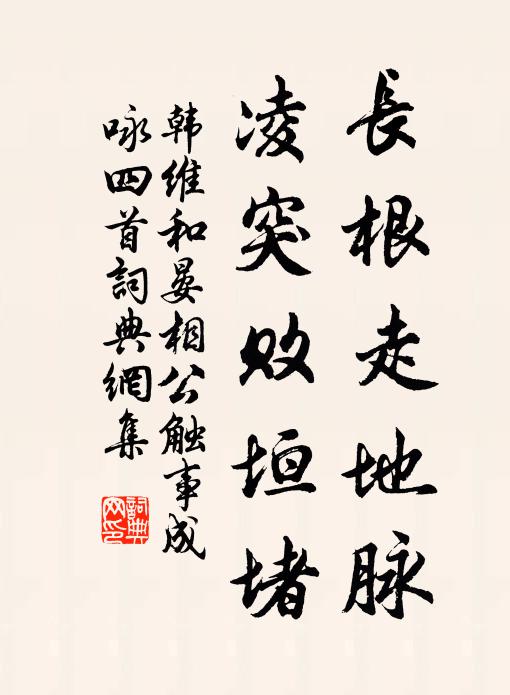 長根走地脉
凌突敗垣堵
韩維和晏相公触事成
咏四首詞典網集
詞典網印